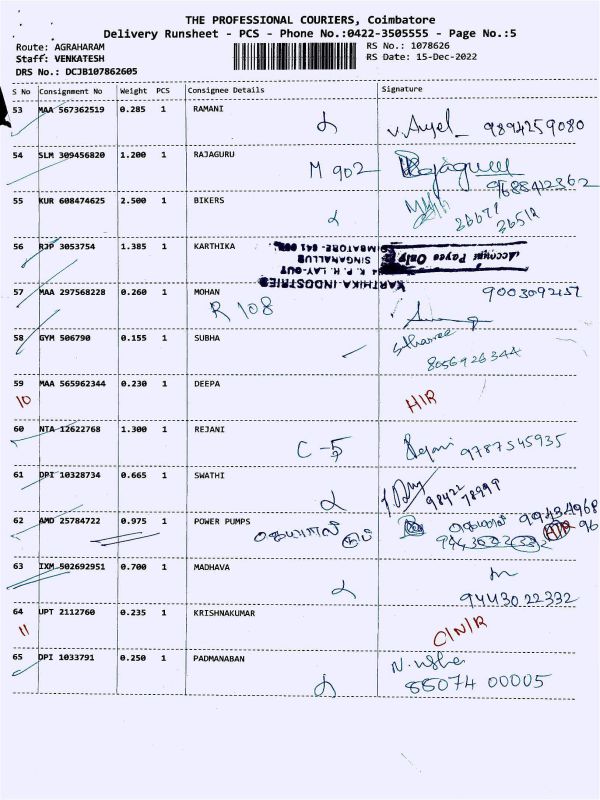 THE PROFESSIONAL COURIERS, Coimbatore
Delivery Runsheet - PCS - Phone No.:0422-3505555 - Page No.:5
Route: AGRAHARAM RS No.: 1078626
Staff: VENKATESH RS Date: 15-Dec-2022
DRS No.: DCJB107862605
S No Consignment No Weight PCS Consignee Details Signature
53 MAA 567362519 0.285 1 RAMANI 9894259080
54 SLM 309456820 1.200 1 RAJAGURU M 902 Rajaguru
9688412362
55 KUR 608474625 2.500 1 BIKERS
56 RJP 3053754 1.385 1 KARTHIKA Account Payee Only
SINGANALLUR
K. R. LAY-OUT
KARTHIKA INDUSTRIES
57 MAA 297568228 0.260 1 MOHAN
R 108
58 GYM 506790 0.155 1 SUBHA
8056926344
59 MAA 565962344 0.230 1 DEEPA
10 H/R
60 NTA 12622768 1.300 1 REJANI C-5 Rejani 9787545935
61 DPI 10328734 0.665 1 SWATHI
98422 78999
62 AMD 25784722 0.975 1 POWER PUMPS H/R
63 IXM 502692951 0.700 1 MADHAVA
9443022332
64 UPT 2112760 0.235 1 KRISHNAKUMAR
11 C/N/R
65 DPI 1033791 0.250 1 PADMANABAN N. Usha
88074 00005